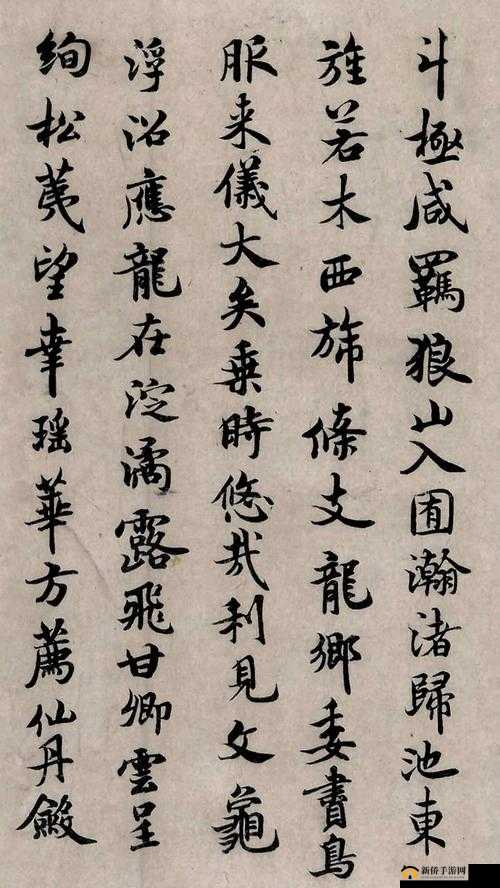 斗極咸羈狼山入囿瀚渚歸池東
旌若木西旆條支龍鄉委書鳥
服来儀大矣乗時悠哉利見文龜
浮沼應龍在淀潏露飛甘卿雲呈
絢松荑望幸瑶華方薦仙丹斂
新侨手游网